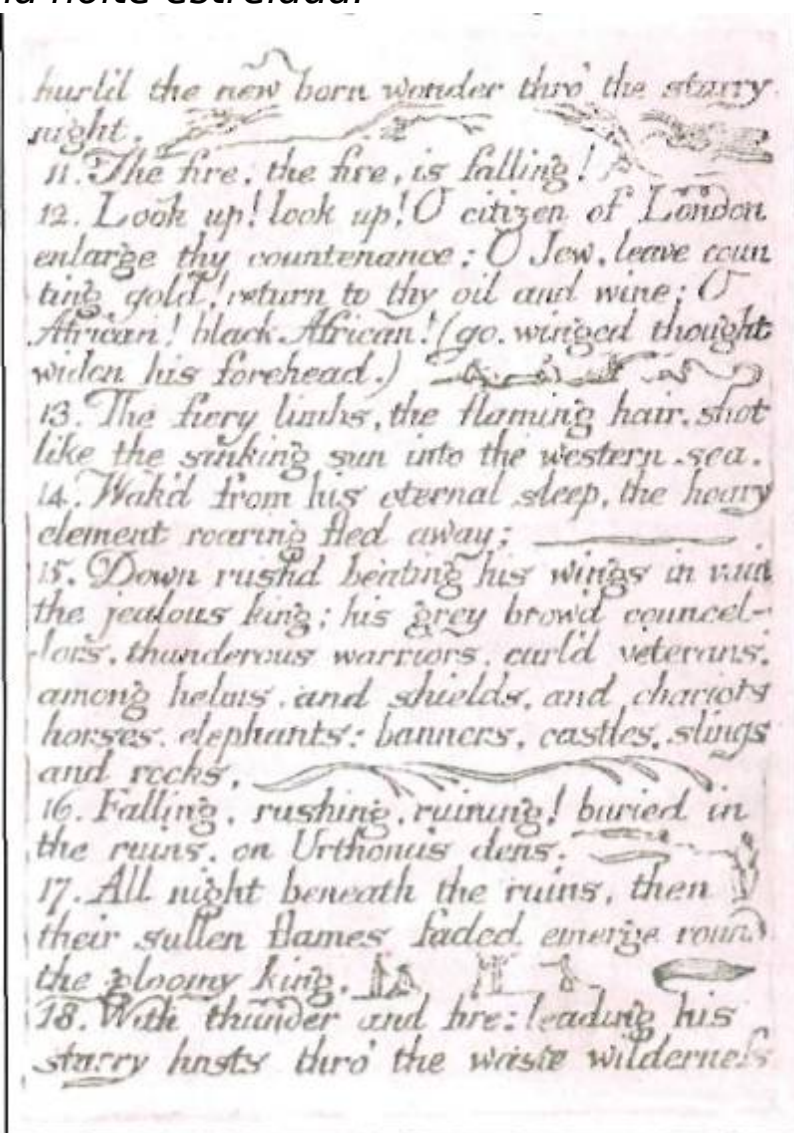 noite estrelada.
hurl'd the new born wonder thro' the starry
night.
11. The fire, the fire, is falling!
12. Look up! look up! O citizen of London
enlarge thy countenance; O Jew, leave coun
ting gold! return to thy oil and wine; O
African! black African! (go. winged thought
widen his forehead.)
13. The fiery limbs, the flaming hair, shot
like the sinking sun into the western sea.
14. Wak'd from his eternal sleep, the hoary
element roaring fled away:
15. Down rush'd beating his wings in vain
the jealous king; his grey brow'd councel-
lors, thunderous warriors, curl'd veterans,
among helms, and shields, and chariots
horses, elephants: banners, castles, slings
and rocks,
16. Falling, rushing, ruining! buried in
the ruins, on Urthona's dens.
17. All night beneath the ruins, then
their sullen flames faded emerge round
the gloomy king,
18. With thunder and fire: leading his
starry hosts thro' the waste wilderness